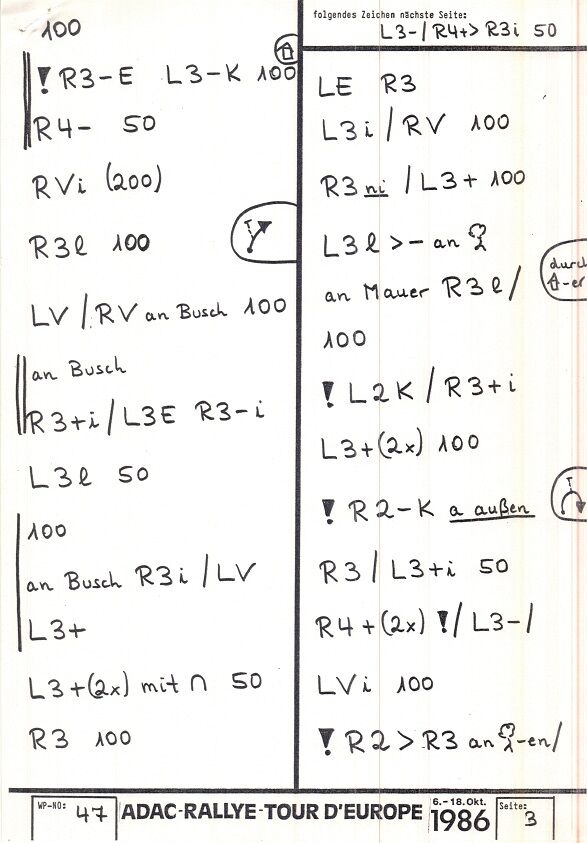 100
! R3-E L3-K 100
R4- 50
RVi (200)
R3l 100
LV / RV an Busch 100
an Busch
R3+i / L3E R3-i
L3l 50
100
an Busch R3i / LV
L3+
L3+(2x) mit ∩ 50
R3 100
folgendes Zeichen nächste Seite:
L3-/R4+> R3i 50
LE R3
L3i / RV 100
R3 ni / L3+ 100
L3l >- an
durch
-er
an Mauer R3l/
100
! L2K / R3+i
L3+(2x) 100
! R2-K a außen
R3 / L3+i 50
R4+(2x) !/ L3-/
LVi 100
! R2 > R3 an -en/
WP-NO: 47
ADAC-RALLYE-TOUR D'EUROPE
6.-18.Okt.
1986
Seite:
3